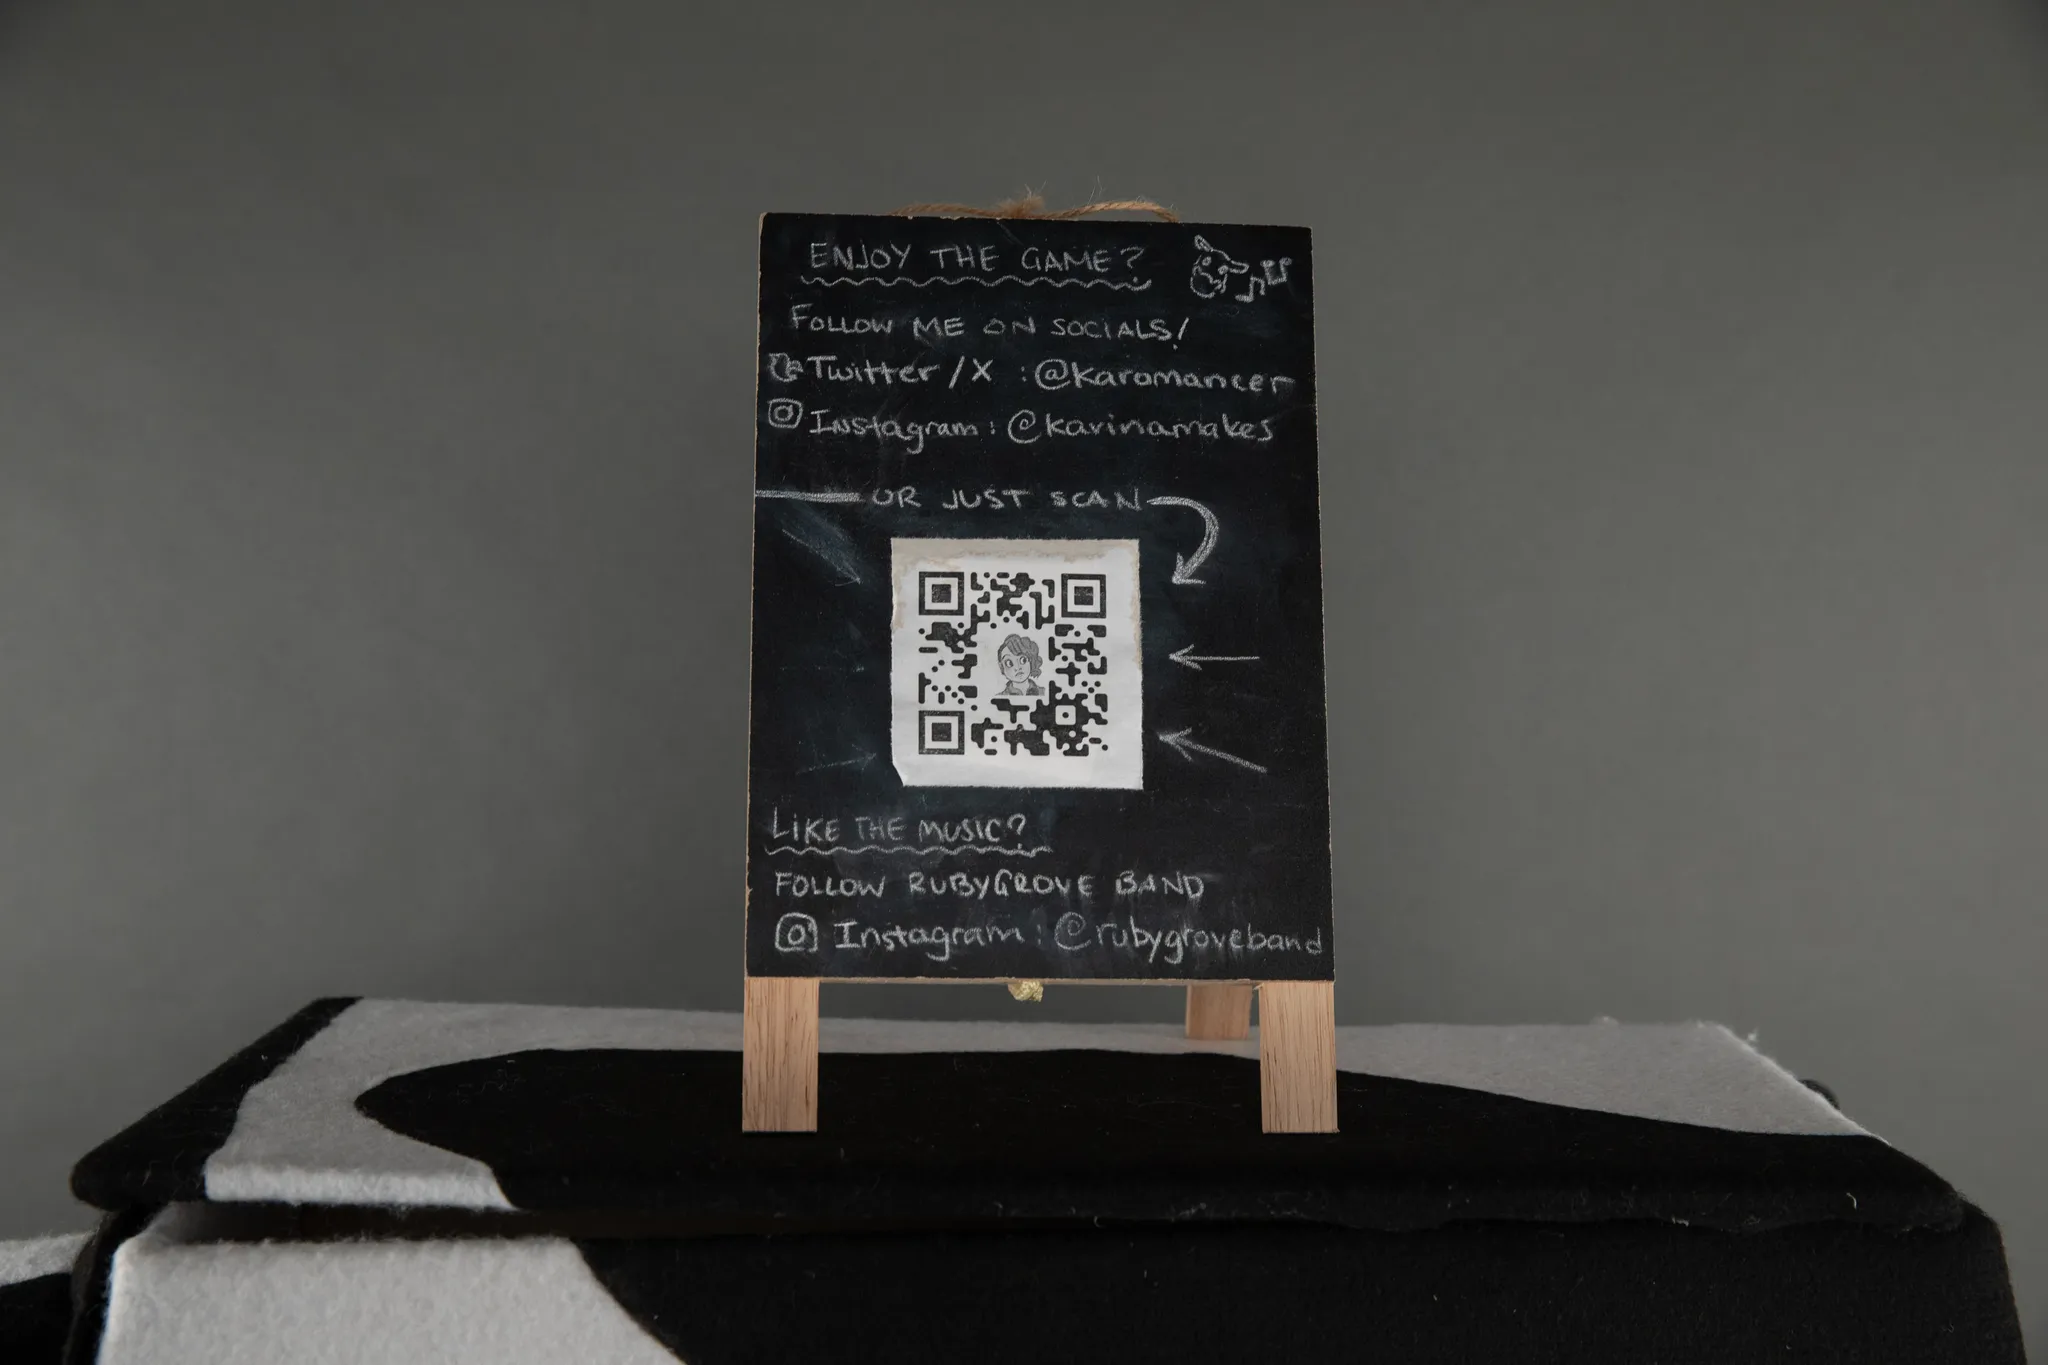 ENJOY THE GAME?
FOLLOW ME ON SOCIALS!
Twitter/X : @karomancer
Instagram: @karinamakes
OR JUST SCAN
LIKE THE MUSIC?
FOLLOW RUBYGROVE BAND
Instagram: @rubygroveband